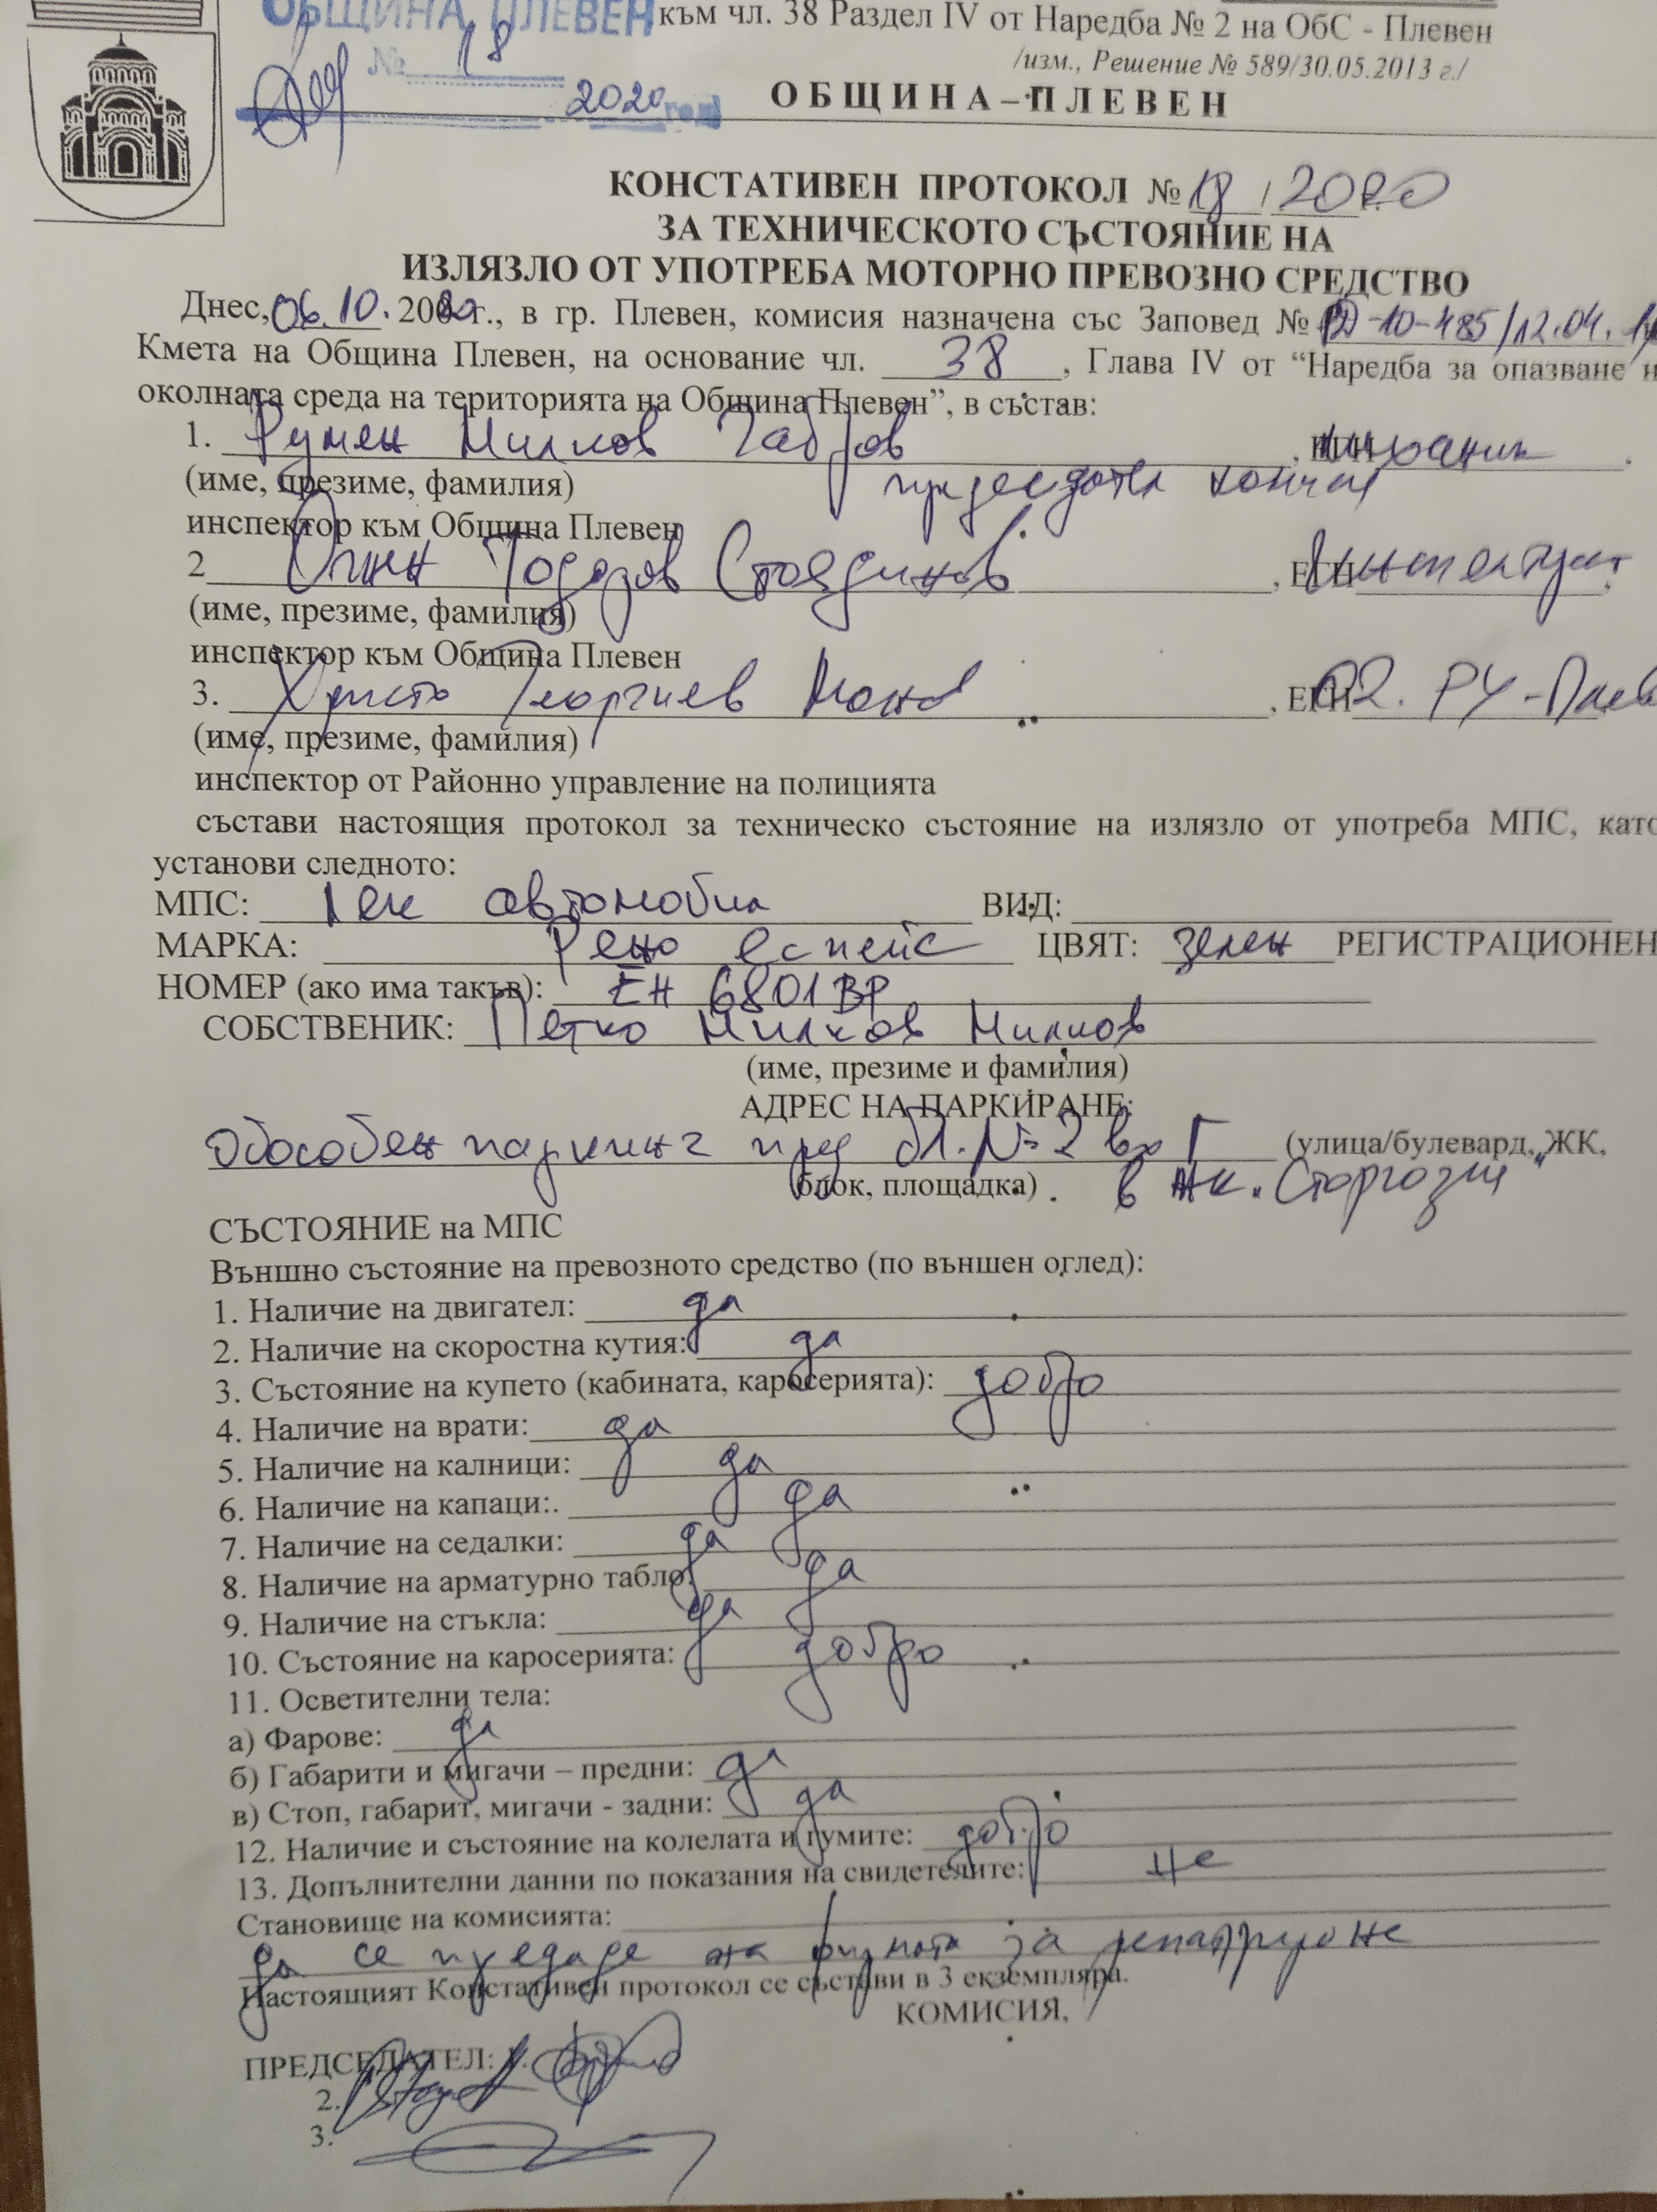 ОБЩИНА ПЛЕВЕН
към чл. 38 Раздел IV от Наредба № 2 на ОбС - Плевен
№ 18
/изм., Решение № 589/30.05.2013 г./
2020 год
ОБЩИНА – ПЛЕВЕН
КОНСТАТИВЕН ПРОТОКОЛ № 18 / 2020
ЗА ТЕХНИЧЕСКОТО СЪСТОЯНИЕ НА
ИЗЛЯЗЛО ОТ УПОТРЕБА МОТОРНО ПРЕВОЗНО СРЕДСТВО
Днес, 06.10. 2020 г., в гр. Плевен, комисия назначена със Заповед № РД-10-485/12.04.
Кмета на Община Плевен, на основание чл. 38 , Глава IV от “Наредба за опазване н
околната среда на територията на Община Плевен”, в състав:
1. Румен Милков , ЕГН
(име, презиме, фамилия) председател
инспектор към Община Плевен
2 Огнян Тодоров Стоядинов , ЕГН .
(име, презиме, фамилия)
инспектор към Община Плевен
3. Христо Георгиев , ЕГН 02. РУ-Плев
(име, презиме, фамилия)
инспектор от Районно управление на полицията
състави настоящия протокол за техническо състояние на излязло от употреба МПС, като
установи следното:
МПС: лек автомобил ВИД:
МАРКА: Рено еспейс ЦВЯТ: зелен РЕГИСТРАЦИОНЕН
НОМЕР (ако има такъв): ЕН 6801 ВР
СОБСТВЕНИК: Петко Милков Милков
(име, презиме и фамилия)
АДРЕС НА ПАРКИРАНЕ:
Обособен паркинг пред бл. № 2 вх Г (улица/булевард, ЖК,
блок, площадка) . в ЖК. „Сторгозия"
СЪСТОЯНИЕ на МПС
Външно състояние на превозното средство (по външен оглед):
1. Наличие на двигател: да
2. Наличие на скоростна кутия: да
3. Състояние на купето (кабината, каросерията): добро
4. Наличие на врати: да
5. Наличие на калници: да
6. Наличие на капаци:. да
7. Наличие на седалки: да
8. Наличие на арматурно табло: да
9. Наличие на стъкла: да
10. Състояние на каросерията: добро
11. Осветителни тела:
а) Фарове: да
б) Габарити и мигачи – предни: да
в) Стоп, габарит, мигачи - задни: да
12. Наличие и състояние на колелата и гумите: добро
13. Допълнителни данни по показания на свидетелите: не
Становище на комисията:
да се предаде на фирмата за репатриране
Настоящият Констативен протокол се състави в 3 екземпляра.
КОМИСИЯ,
ПРЕДСЕДАТЕЛ:
2.
3.